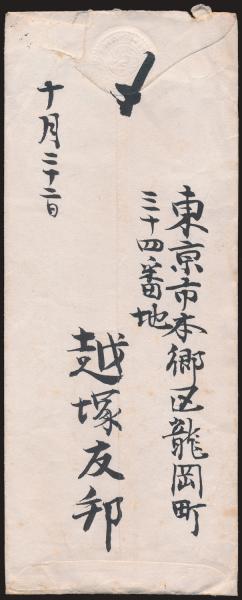 東京市本郷区龍岡町
三十四番地
越塚友邦
十月二十二日
〆